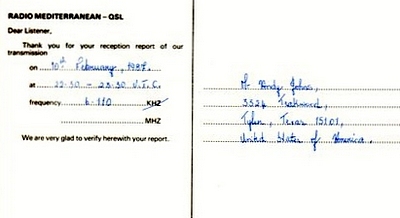 RADIO MEDITERRANEAN – QSL
Dear Listener,
Thank you for your reception report of our
transmission
on 10th February, 1987.
at 22.30 – 23.30 U.T.C.
frequency 6.110 KHZ
MHZ
We are very glad to verify herewith your report.
Mr Andy Johns,
3524
Tyler, Texas 15701,
United States of America.